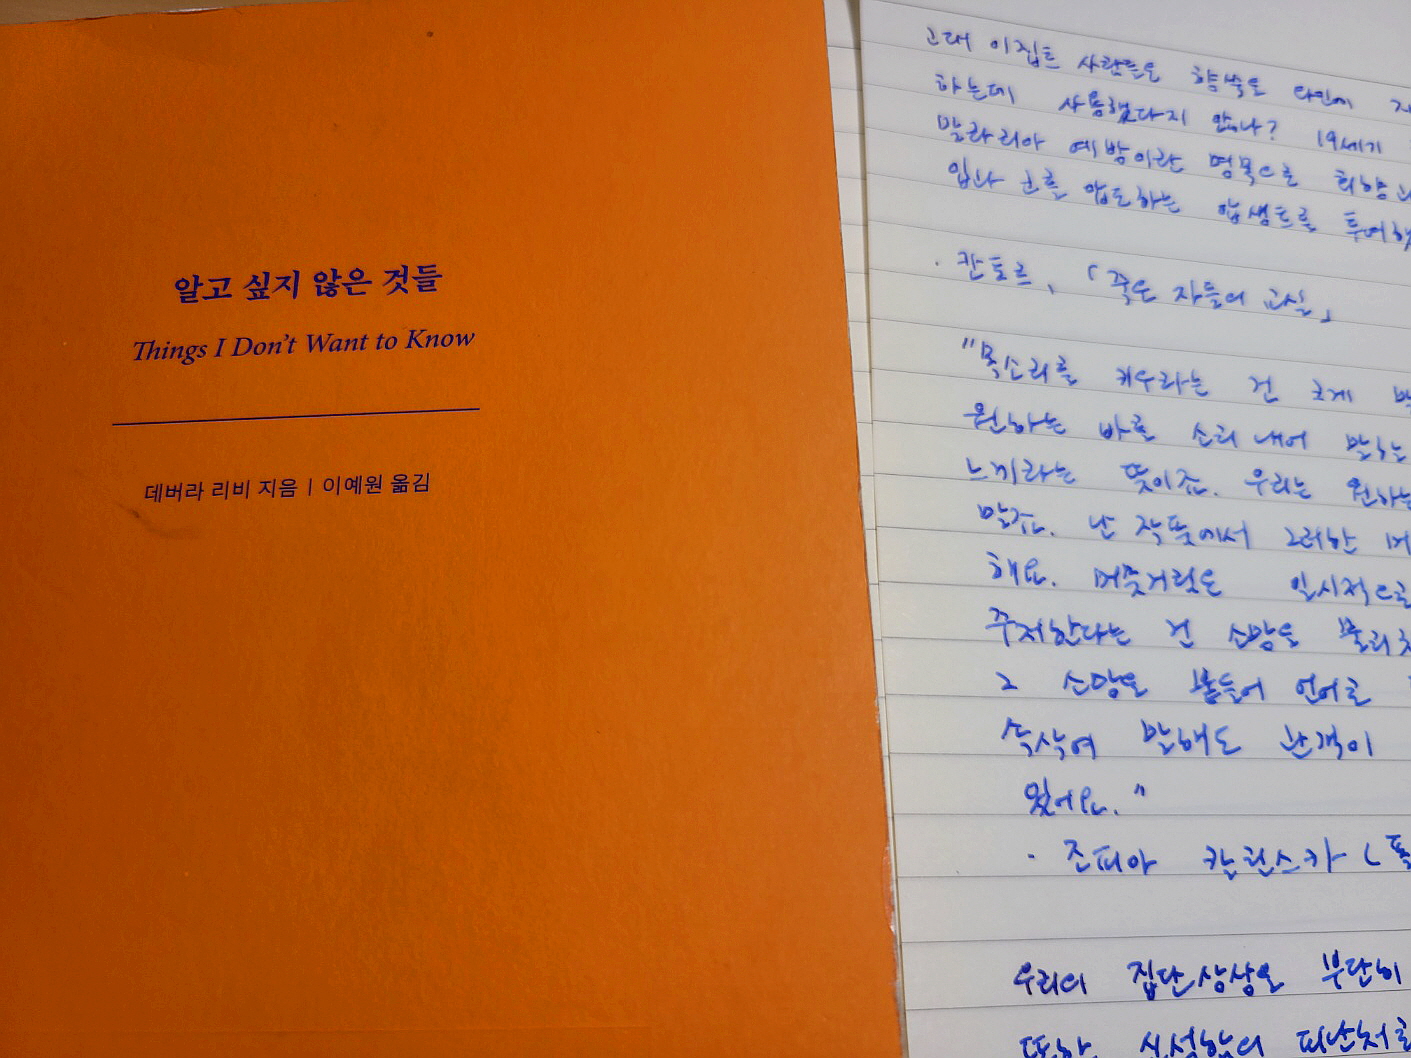 알고 싶지 않은 것들
Things I Don't Want to Know
데버라 리비 지음 | 이예원 옮김
고대 이집트 사람들은 향쑥을 타인에
하는데 사용했다지 않나? 19세기
말라리아 예방이란 명목으로 회향과
입과 코를 압도하는 압생트를 투여했
· 칸토르, 「죽은 자들의 교실」
"목소리를 키우라는 건 크게
원하는 바를 소리 내어 말하는
느끼라는 뜻이죠. 우리는 원하는
말죠. 난 작품에서 그러한 머
해요. 머뭇거림은 일시적으로
주저한다는 건 소망을 물리치
그 소망을 붙들어 언어로
속삭여 말해도 관객이
있어요."
· 조피아 칼린스카 (폴
우리의 집단상상은 부단히
또한 신성함의 피난처로